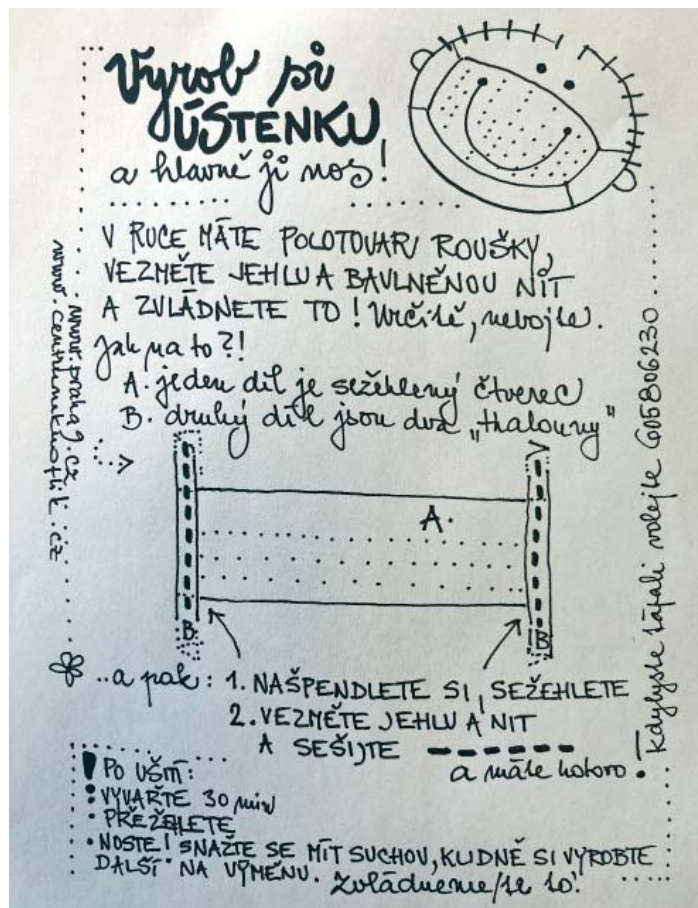 Vyrob si
ÚSTENKU
a hlavně ji nos!
V RUCE MÁTE POLOTOVAR ROUŠKY,
VEZMĚTE JEHLU A BAVLNĚNOU NIT
A ZVLÁDNETE TO! Určitě, nebojte.
Jak na to?!
A. jeden díl je sežehlený čtverec
B. druhý díl jsou dva „thalouny"
A.
B
B
..a pak: 1. NAŠPENDLETE SI, SEŽEHLETE
2. VEZMĚTE JEHLU A NIT
A SEŠIJTE
a máte hotovo!
PO UŠITÍ:
VYVAŘTE 30 min
• PŘEŽEHLETE
• NOSTE! SNAŽTE SE MÍT SUCHOU, KLIDNĚ SI VYROBTE
DALŠÍ NA VÝMĚNU. Zvládneme/te to!
www.praha9.cz
www.centrumknoflik.cz
kdybyste tápali volejte 605806230